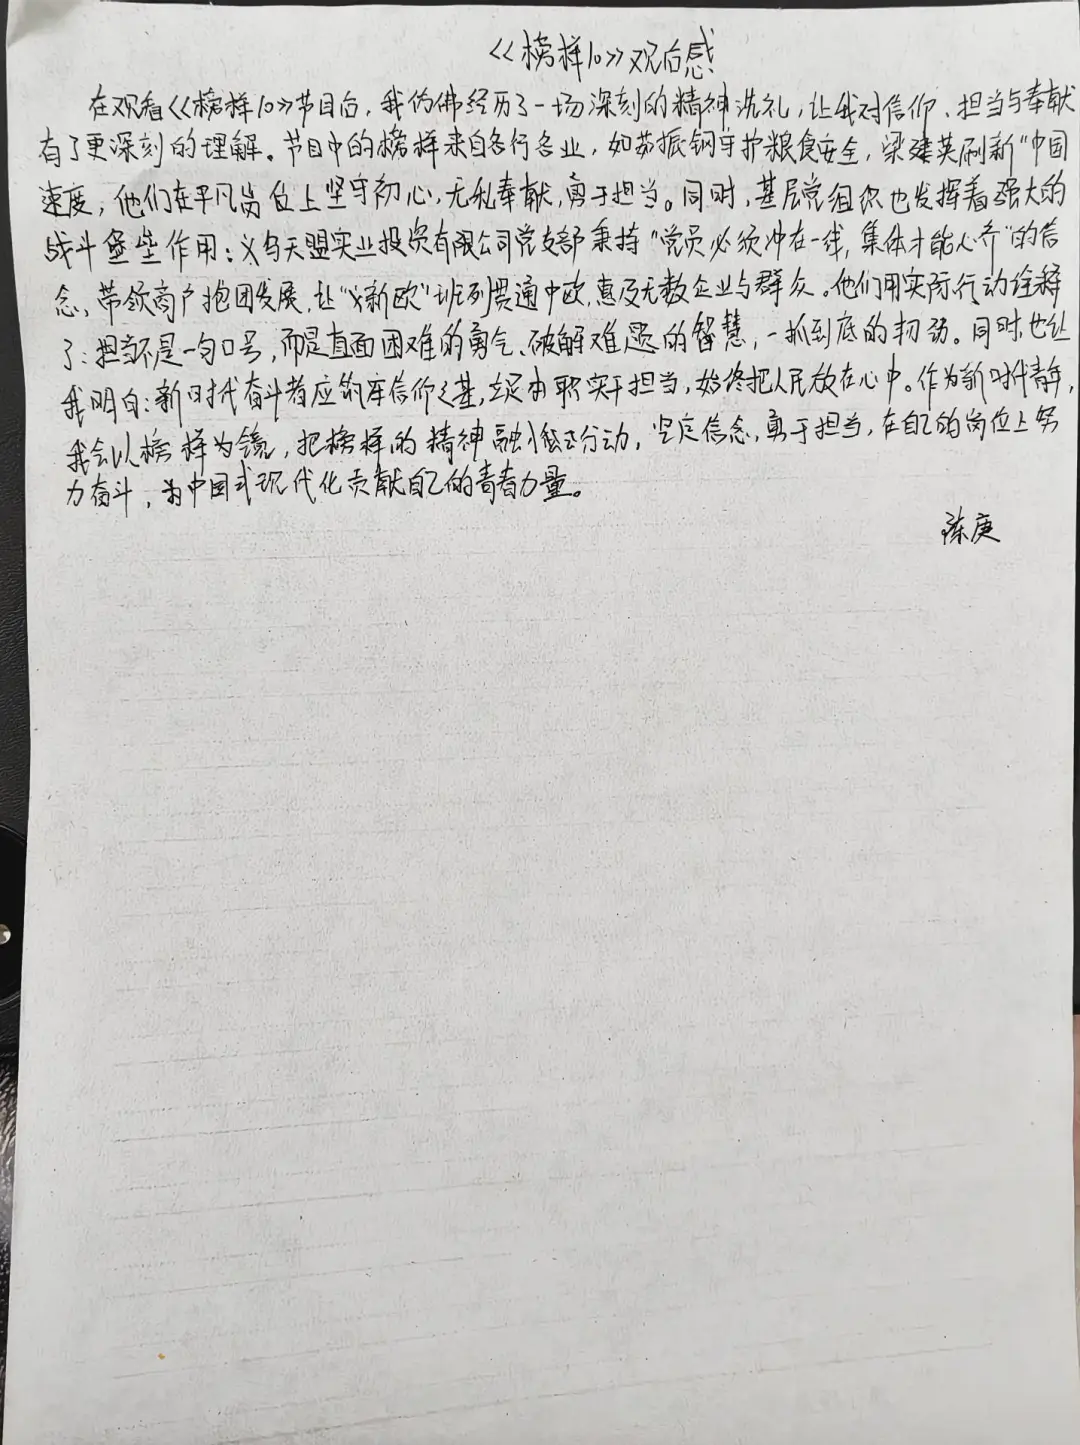 《榜样10》观后感
在观看《榜样10》节目后，我仿佛经历了一场深刻的精神洗礼，让我对信仰、担当与奉献
有了更深刻的理解。节目中的榜样来自各行各业，如苏振钢守护粮食安全，梁建英刷新“中国
速度，他们在平凡岗位上坚守初心，无私奉献，勇于担当。同时，基层党组织也发挥着强大的
战斗堡垒作用：义乌天盟实业投资有限公司党支部秉持“党员必须冲在一线，集体才能心齐”的信
念，带领商户抱团发展，让“义新欧”班列贯通中欧，惠及无数企业与群众。他们用实际行动诠释
了：担当不是一句口号，而是直面困难的勇气、破解难题的智慧，一抓到底的韧劲。同时，也让
我明白：新时代奋斗者应筑牢信仰之基，立足本职实干担当，始终把人民放在心中。作为新时代青年，
我会以榜样为镜，把榜样的精神融入行动，坚定信念，勇于担当，在自己的岗位上努
力奋斗，为中国式现代化贡献自己的青春力量。
陈庚